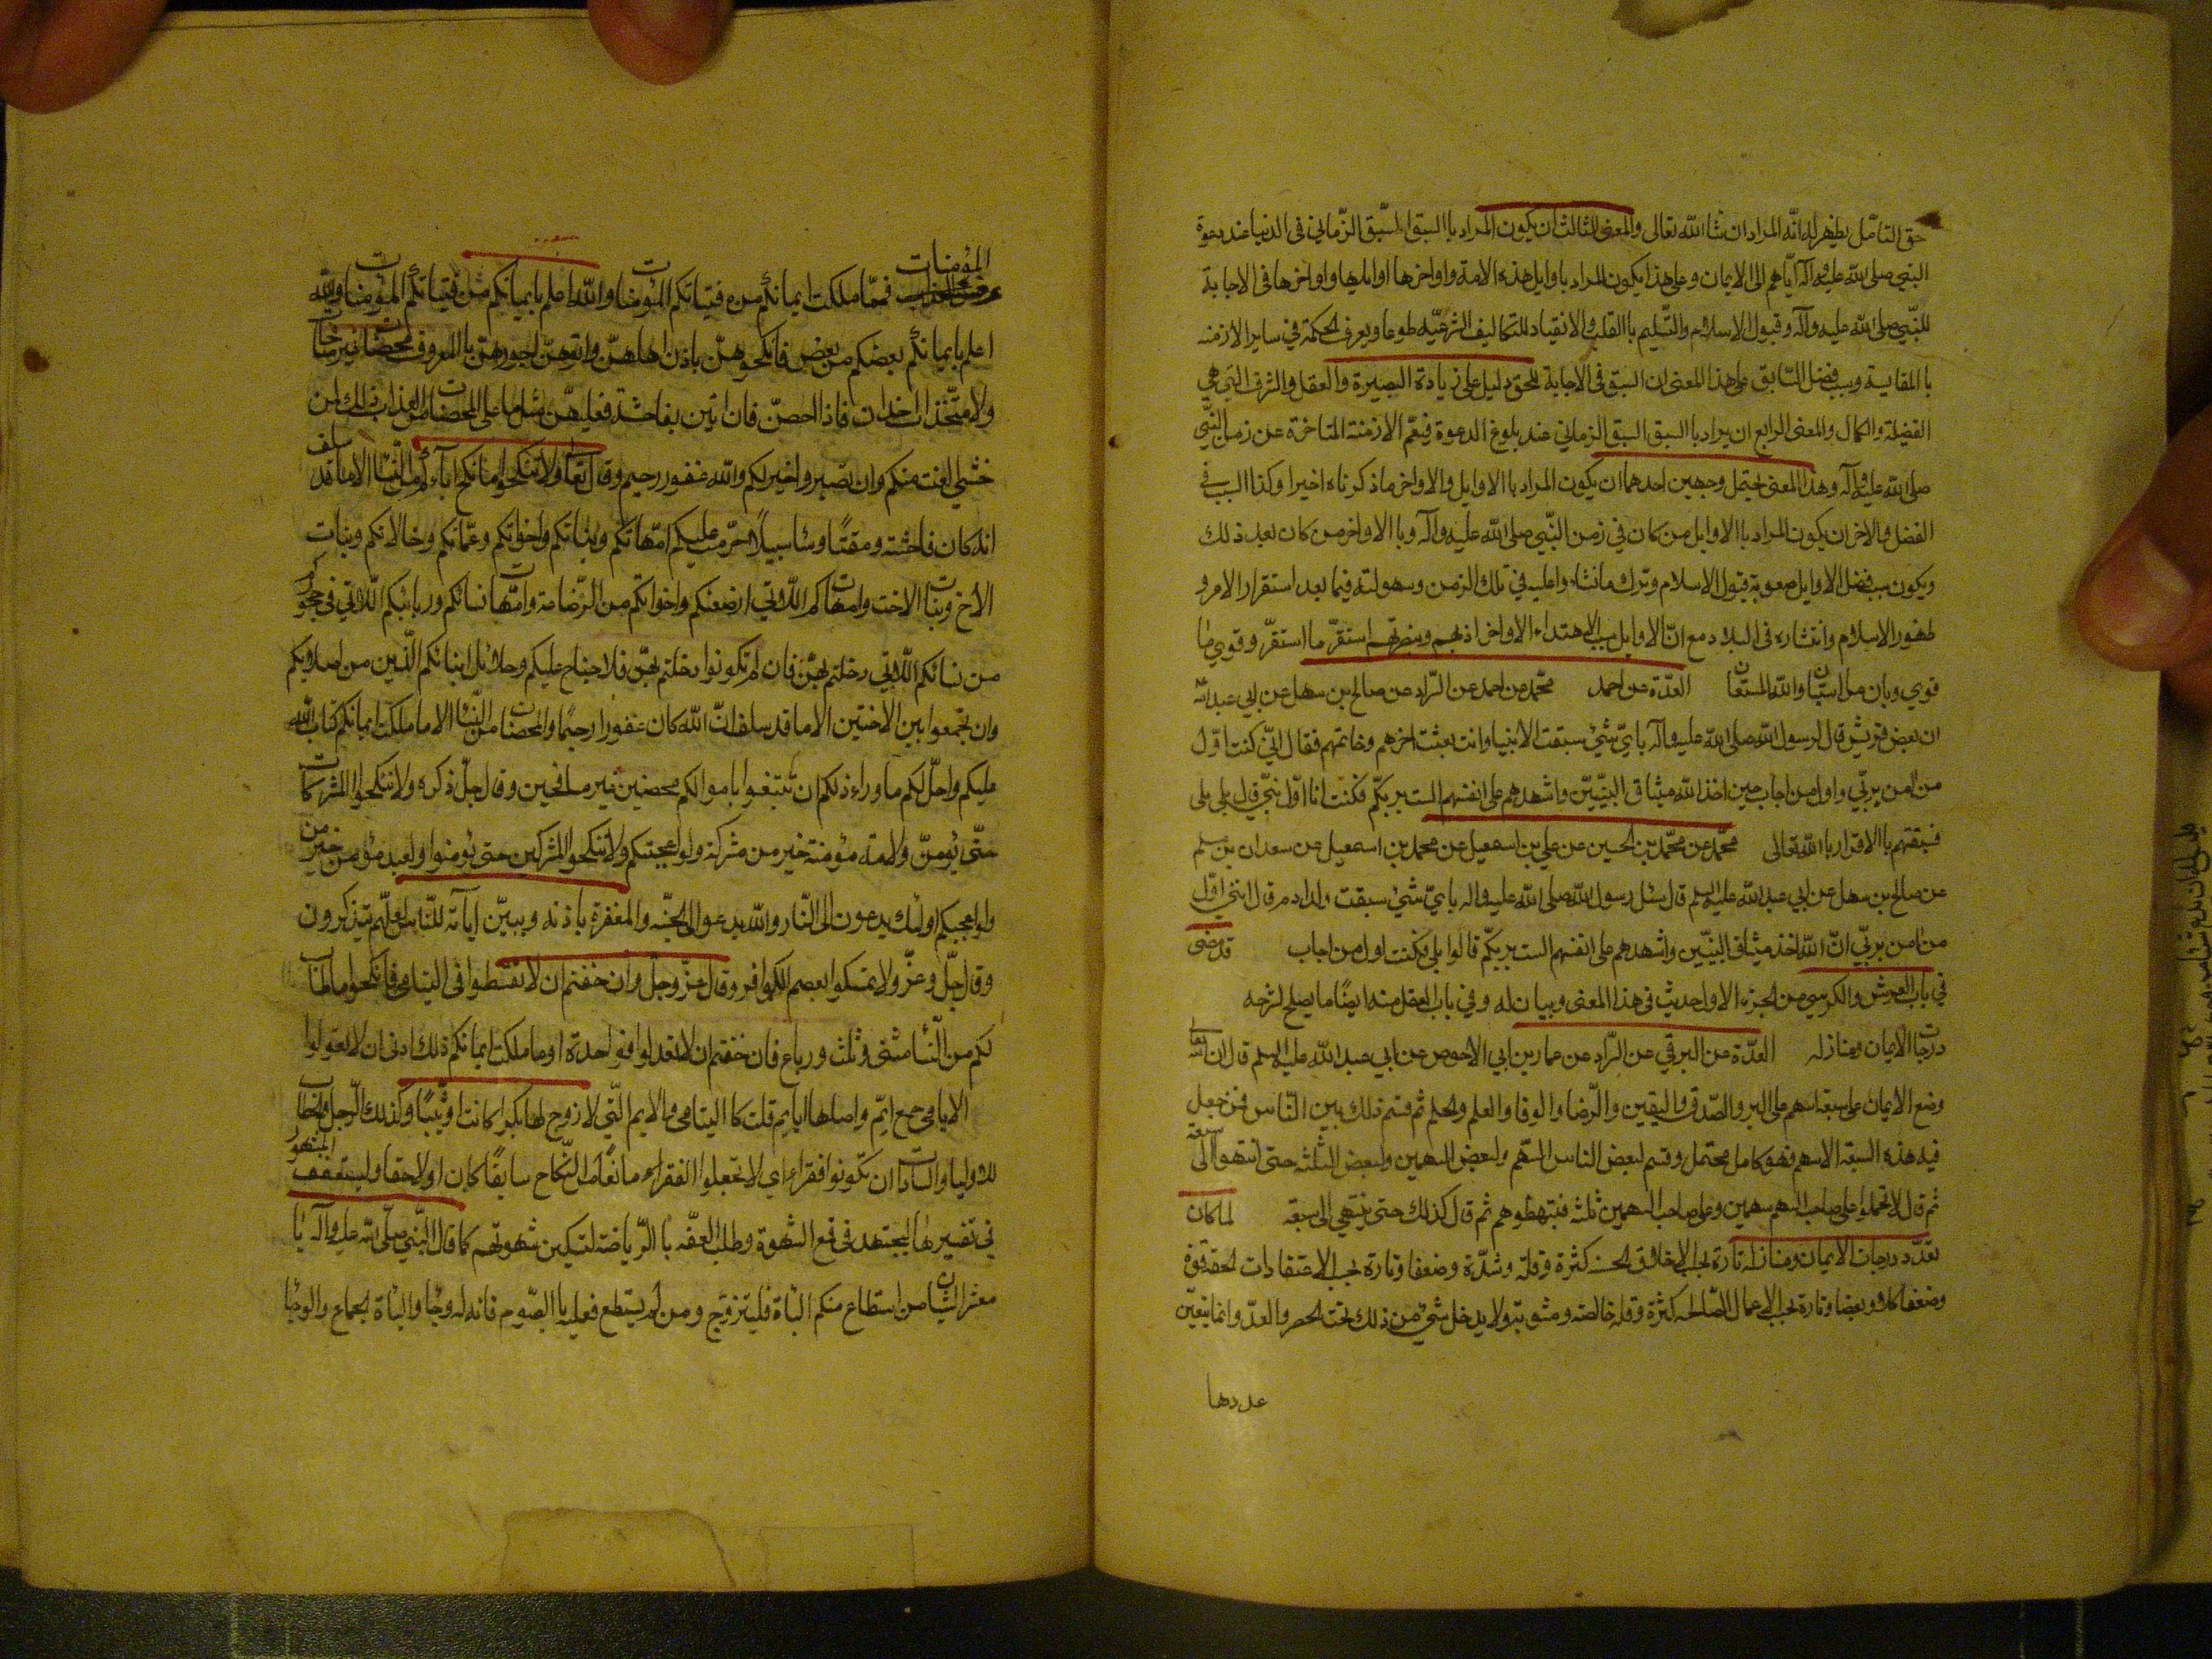 حق التامّل يظهر له انّه المراد ان شا الله تعالى والمعنى الثالث ان يكون المراد باالسبق السّبق الزّماني في الدنيا عند دعوة
النبي صلى الله عليه وآله ايّاهم الى الايمان وعلى هذا يكون المراد باوايل هذه الامة واواخرها اوايلها واواخرها في الاجابة
للنّبي صلى الله عليه وآله وقبول الاسلام والتّسليم باالقلب والانقياد للتكاليف الشرعيّه طوعا ويعرف الحكمة في ساير الازمنه
باالمقايسة وسبب فضل السّابق على هذا المعنى ان السبق في الاجابة للحق دليل على زيادة البصيرة والعقل والشرف التي هي
الفضيلة والكمال والمعنى الرابع ان يراد باالسبق السبق الزماني عند بلوغ الدعوة فيعّم الازمنة المتاخرة عن زمن النّبي
صلى الله عليه وآله وهذا المعنى يحتمل وجهين احدهما ان يكون المراد باالاوايل والاواخر ما ذكرناه اخيرا وكذا السبب في
الفضل والاخر ان يكون المراد باالاوايل من كان في زمن النّبي صلى الله عليه وآله وباالاواخر من كان بعد ذلك
ويكون سبب فضل الاوايل صعوبة قبول الاسلام وترك ما نشاوا عليه في تلك الزمن وسهولته فيما بعد استقرار الامر و
ظهور الاسلام وانتشاره في البلاد مع انّ الاوايل سبب الاهتداء الاواخر اذ بهم وبنصرتهم استقرّ ما استقرّ وقوي ما
قوي وبان ما استبان والله المستعان العدّة عن احمد محمّد عن احمد عن السّراد عن صالح بن سهل عن ابي عبد الله
ان بعض قريش قال لرسول الله صلى الله عليه وآله باي شئ سبقت الانبيا وانت بعثت اخرهم وخاتمهم فقال انّي كنت اوّل
من امن بربّي واول من اجاب حين اخذ الله ميثاق النبيّين واشهدهم على انفسهم الست بربكّم فكنت انا اوّل نبّي قال بلى
فسبقتهم باالاقرار باالله تعالى محمّد عن محمّد بن الحسين عن علي بن اسمعيل عن محمد بن اسمعيل عن سعدان بن مسلم
عن صالح بن سهل عن ابي عبد الله عليه السلم قال سئل رسول الله صلى الله عليه واله باي شئ سبقت ولد ادم قال انني اوّل
من امن بربّي انّ الله اخذ ميثاق النبيّين واشهدهم على انفسهم الست بربكّم قالوا بلى فكنت اول من اجاب قد مضى
في باب العرش والكرسي من الجزء الاول حديث في هذا المعنى وبيان له وفي باب العقل منه ايضًا ما يصلح لشرحه
درجات الايمان ومنازله العدّة عن البرقي عن السّراد عن عمار بن ابي الاحوص عن ابي عبد الله عليه السلم قال ان الله تعالى
وضع الايمان على سبعة اسهم على البر والصّدق واليقين والرّضا والوفا والعلم والحلم ثم قسم ذلك بين النّاس فمن جعل
فيه هذه السبعة الاسهم فهو كامل محتمل وقسم لبعض الناس السّهم ولبعض السهمين ولبعض الثلثة حتى انتهوا الى سبعة
ثم قال لا تحملوا على صاحب السهم سهمين وعلى صاحب السهمين ثلثة فتبهظوهم ثم قال كذلك حتى ينتهي الى سبعه لما كان
تعدّد درجات الايمان ومنازله تارة بحسب الاخلاق الحسنة كثرة وقلة وشدّة وضعفا وتارة بحسب الاعتقادات الحقة قوة
وضعفا كلا وبعضا وتارة بحسب الاعمال الصّالحه كثرة وقلة خالصة ومشوبة ولا يدخل شئ من ذلك تحت الحصر والعدّ وانما يتعيّن
عددها
المؤمنات فممّا ملكت ايمانكم من فتياتكم المؤمنات والله اعلم بايمانكم من فتياتكم المؤمنات والله
اعلم بايمانكم بعضكم من بعض فانكحوهنّ باذن اهلهنّ واتوهنّ اجورهنّ باالمعروف محصنات غير مسافحات
ولا متّخذات اخدان فاذا احصنّ فان اتين بفاحشة فعليهنّ نصف ما على المحصنات من العذاب ذلك لمن
خشي العنت منكم وان تصبروا خير لكم والله غفور رحيم وقال تعالى ولا تنكحوا ما نكح اباءكم من النّسا الا ما قد سلف
انه كان فاحشة ومقتًا وساء سبيلاً حرّمت عليكم امّهاتكم وبناتكم واخواتكم وعمّاتكم وخالاتكم وبنات
الاخ وبنات الاخت وامهاتكم اللّاتي ارضعنكم واخواتكم من الرّضاعة وامّهات نسائكم وربائبكم اللّاتي في حجوركم
من نسائكم اللّاتي دخلتم بهنّ فان لم تكونوا دخلتم بهنّ فلا جناح عليكم وحلائل ابنائكم الّذين من اصلابكم
وان تجمعوا بين الاختين الا ما قد سلف انّ الله كان غفورا رحيمًا والمحصنات من النّسا الا ما ملكت ايمانكم كتاب الله
عليكم واحلّ لكم ما وراء ذلكم ان تبتغوا باموالكم محصنين غير مسافحين وقال جلّ ذكره ولا تنكحوا المشركات
حتّى يؤمنّ ولامة مؤمنة خير من مشركة ولو اعجبتكم ولا تنكحوا المشركين حتى يؤمنوا ولعبد مؤمن خير من
ولو اعجبكم اولئك يدعون الى النّار والله يدعوا الى الجنّه والمغفرة باذنه ويبيّن اياته للنّاس لعلّهم يتذكرون
وقال جلّ وعزّ ولا تمسكوا بعصم الكوافر وقال عزّ وجلّ وان خفتم ان لا تقسطوا في اليتامى فانكحوا ما طاب
لكم من النّسا مثنى وثلث ورباع فان خفتم ان لا تعدلوا فواحدة او ما ملكت ايمانكم ذلك ادنى ان لا تعولوا
الايامى جمع ايّم واصلها ايايم قلبت كا اليتامى والايم الّتي لا زوج لها بكرا كانت او ثيّبًا وكذلك الرّجل والخطاب
للاوليا والسادات ان تكونوا فقراء اي لا تجعلوا الفقر مانعًا من النّكاح سابقًا كان او لاحقا وليستعفف المشهور
في تفسيرها ليجتهد في قمع الشّهوة وطلب العفّه باالرّياضة لتسكين شهوتهم كما قال النّبي صلّى الله عليه وآله يا
معشر الشّباب من استطاع منكم الباة فليتزوّج ومن لم يستطع فعليه باالصّوم فانه له وجا والباة الجماع والوجا